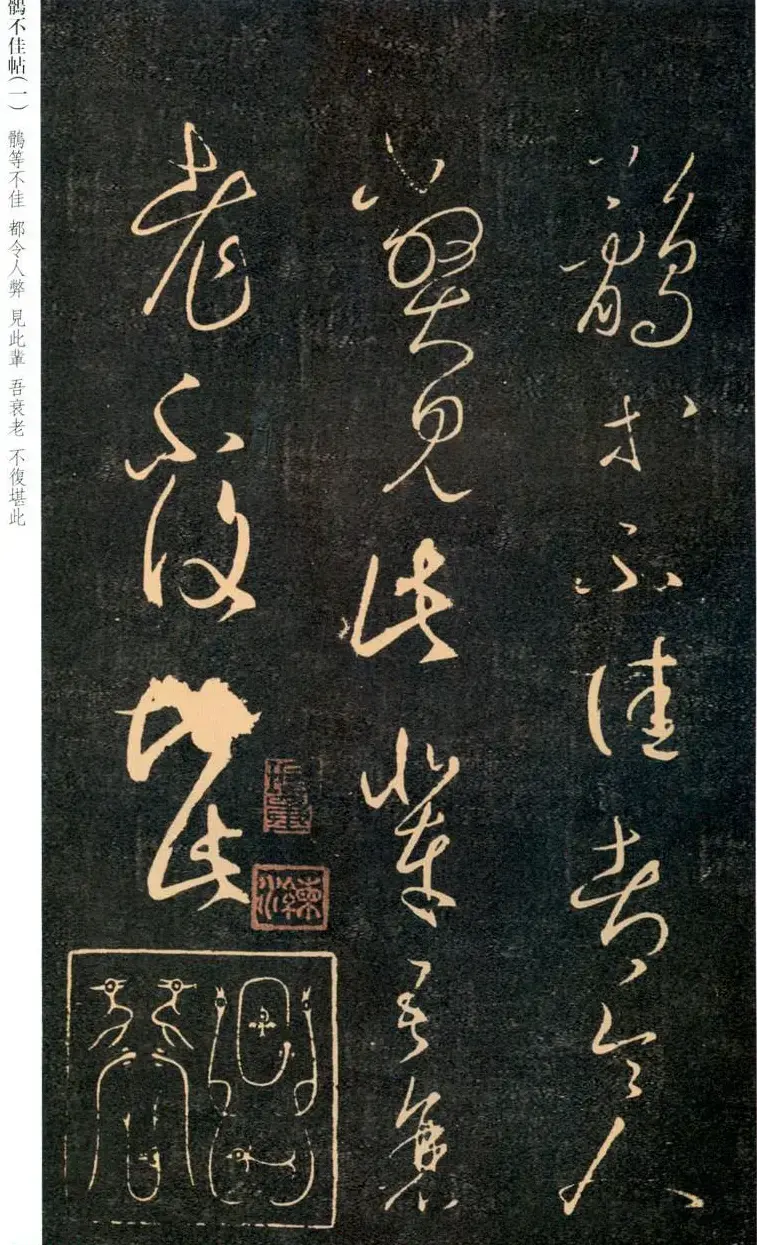 鶻等不佳都令人
弊見此輩吾衰
老不復堪此
鶻不佳帖(一) 鶻等不佳 都令人弊 見此輩 吾衰老 不復堪此